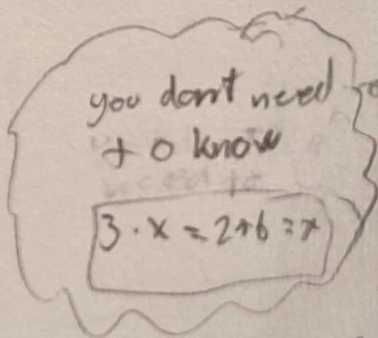 you don't need
to know
3 · x = 2+6 = x